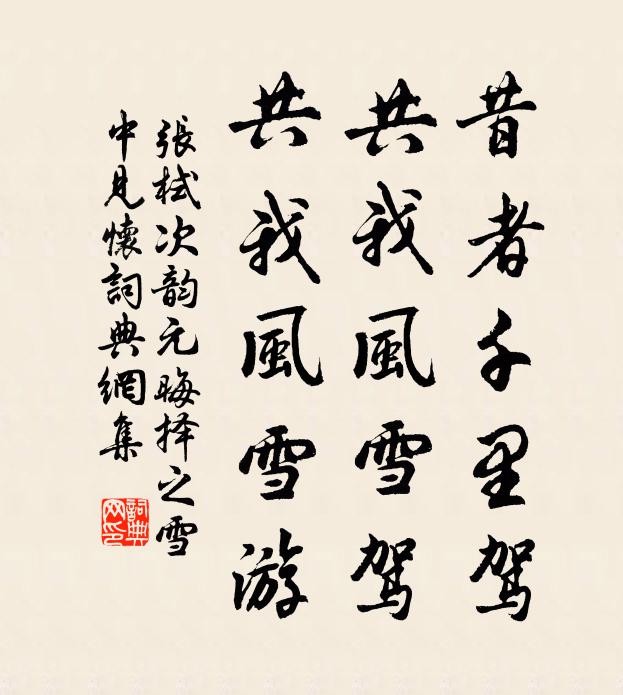 昔者千里駕
共我風雪駕
共我風雪游
張栻次韵元晦择之雪
中見懷詞典網集
詞典
网印